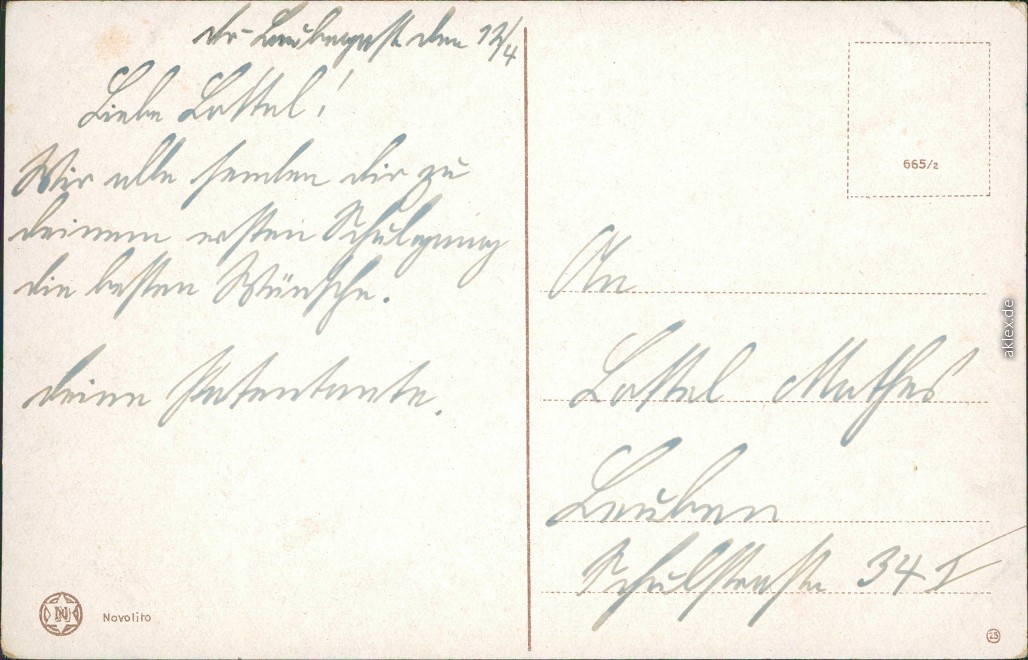 Dr-Laubegast den 12/4
Liebe Lottel!
Wir alle senden dir zu
deinem ersten Schulgung
die besten Wünsche.
deine Patentante.
665/2
An
Lottel Mathes
Leuben
Schulstraße 34 I
Novolito
N
25
aklex.de